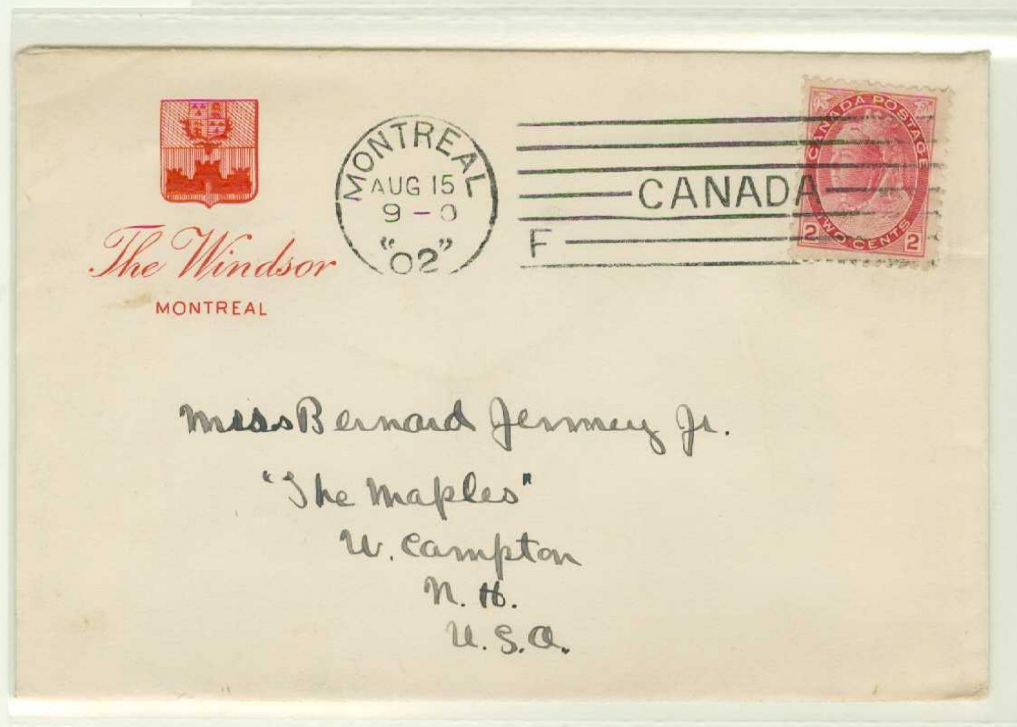 The Windsor
MONTREAL
MONTREAL
AUG 15
9-0
"02"
CANADA
F
CANADA POSTAGE
2 TWO CENTS 2
Miss Bernard Jenney Jr.
"The Maples"
W. Campton
N. H.
U.S.A.